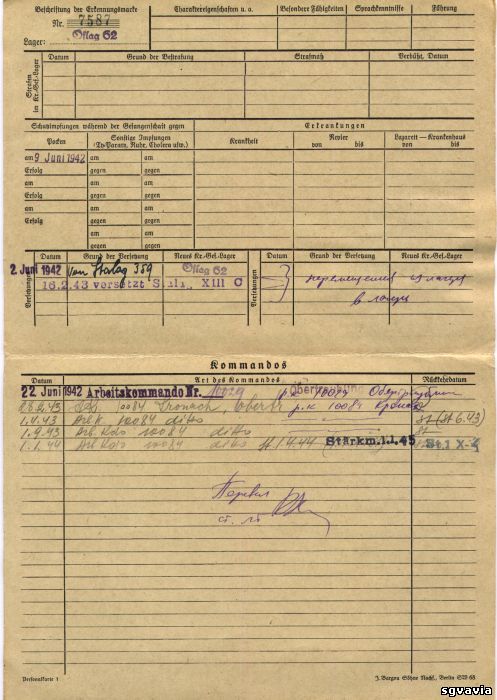 Beschriftung der Erkennungsmarke
Nr. 7587
Lager: Oflag 62
Charaktereigenschaften u. a.
Besondere Fähigkeiten
Sprachkenntnisse
Führung
Strafen im Kr.-Gef.-Lager
Datum
Grund der Bestrafung
Strafmaß
Verbüßt, Datum
Schutzimpfungen während der Gefangenschaft gegen
Erkrankungen
Pocken
Sonstige Impfungen
(Ty-Paraty, Ruhr, Cholera usw.)
Krankheit
Revier
von bis
Lazarett – Krankenhaus
von bis
am 9 Juni 1942 am am
Erfolg gegen gegen
am am am
Erfolg gegen gegen
am am am
Erfolg gegen gegen
am am
gegen gegen
Versetzungen
Datum
Grund der Versetzung
Neues Kr.-Gef.-Lager
Versetzungen
Datum
Grund der Versetzung
Neues Kr.-Gef.-Lager
2. Juni 1942 von Stalag 359 Oflag 62
16.2.43 versetzt Stalag XIII C
перемещения из лагеря
в лагерь
Kommandos
Datum
Art des Kommandos
Rückkehrdatum
22. Juni 1942 Arbeitskommando Nr. р.к 10079
10084 Kronach р.к 10084 Кронах
1.4.43 Arb.K 10084 ditto
1.9.43 Arb.Kdo 10084 ditto
1.1.44 Arb.Kdo 10084 ditto 1.4.44 Stärkm. 1.1.45
Перевел
ст. лт
Personalkarte 1
J. Bargou Söhne Nachf., Berlin SW 68
sgvavia